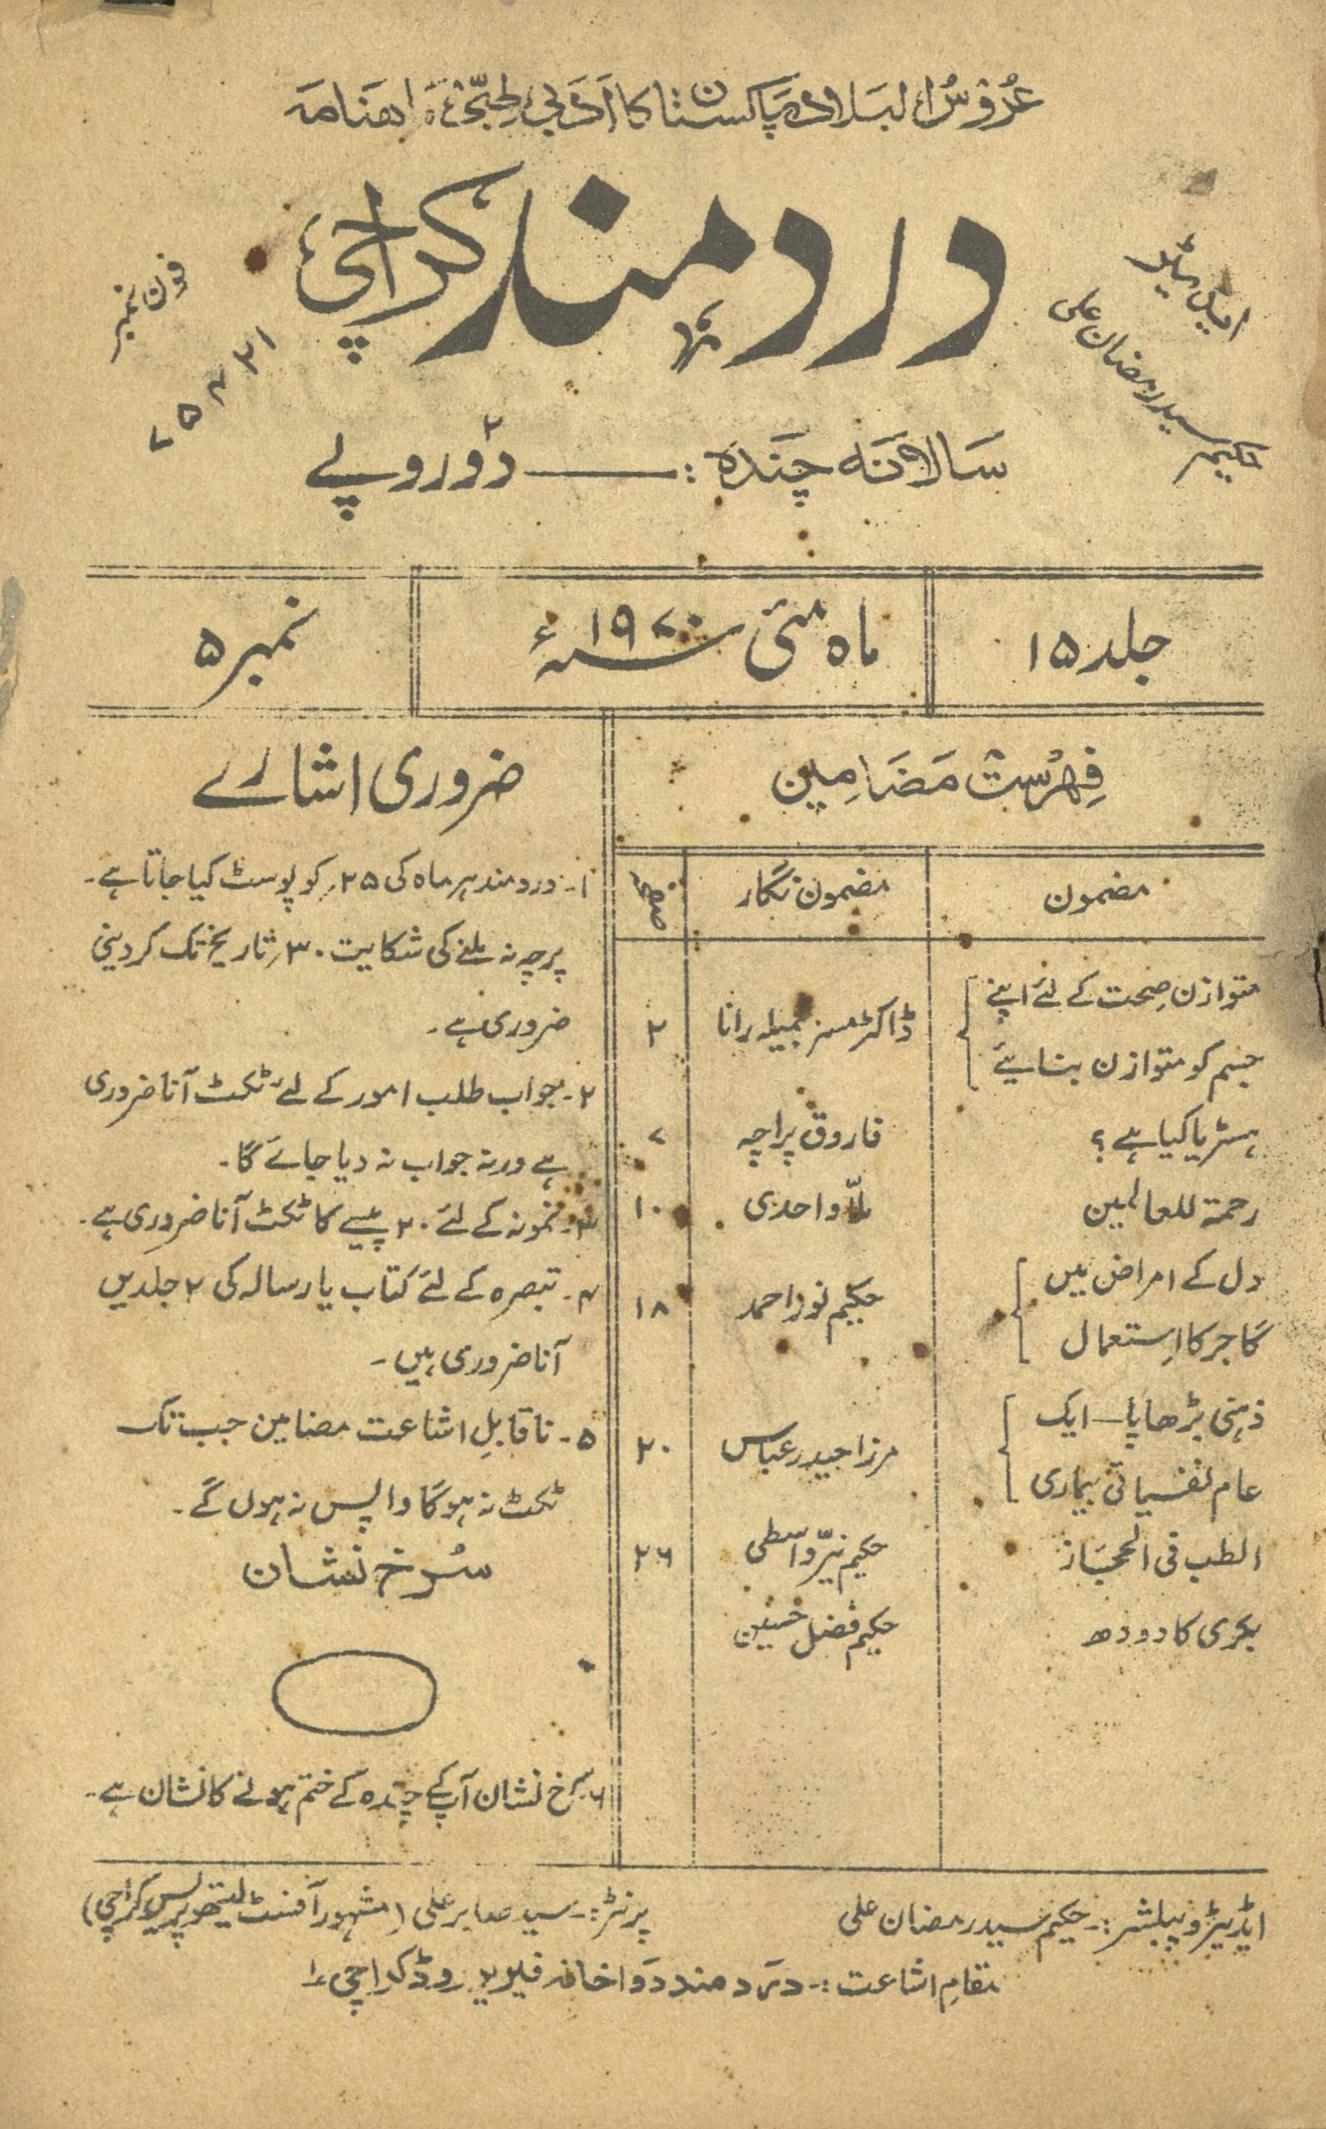 عُرُوسُ البَلاد پَاکستان کا اَدَبی طِبّی مَاھنَامَہ
درد مند کراچی
ایڈیٹر
حکیم سید رمضان علی
فون نمبر
سَالَانَہ چَندَہ :۔ دٌو روپے
جلد ۱۵
ماہ مئی ۱۹۷۰ء
نمبر ۵
فِہرُست مَضَامِین
مضمون
مضمون نگار
صفحہ
متوازن صحت کے لئے اپنے
جسم کو متوازن بنایئے
ڈاکٹر مسز جمیلہ رانا
۲
ہسٹریا کیا ہے ؟
فاروق پراچہ
۷
رحمۃ للعالمین
ملّا واحدی
۱۰
دل کے امراض میں
گاجر کا اِستعمال
حکیم نور احمد
۱۸
ذہنی بڑھاپا۔ ایک
عام نفسیاتی بیماری
مرزا حیدر عباس
۲۰
الطب فی الحجاز
حکیم نیّر واسطی
۲۶
بکری کا دودھ
حکیم فضل حسین
ضروری اشارے
۱۔ درد مند ہر ماہ کی ۲۵؍ کو پوسٹ کیا جاتا ہے۔
پرچہ نہ ملنے کی شکایت ۳۰؍ تاریخ تک کر دینی
ضروری ہے۔
۲۔ جواب طلب امور کے لئے ٹکٹ آنا ضروری
ہے ورنہ جواب نہ دیا جائے گا۔
۳۔ نمونہ کے لئے ۲۰ پیسے کا ٹکٹ آنا ضروری ہے۔
۴۔ تبصرہ کے لئے کتاب یا رسالہ کی ۲ جلدیں
آنا ضروری ہیں۔
۵۔ ناقابلِ اشاعت مضامین جب تک
ٹکٹ نہ ہوگا واپس نہ ہوں گے۔
سُرخ نشان
۶۔ سرخ نشان آپکے چندہ کے ختم ہونے کا نشان ہے۔
ایڈیٹر و پبلشر :۔ حکیم سید رمضان علی
پرنٹر :۔ سید صابر علی (مشہور آفسٹ لیتھو پریس کراچی)
مقامِ اشاعت :۔ دَرد مند دَواخانہ فیلڈ روڈ کراچی ۱